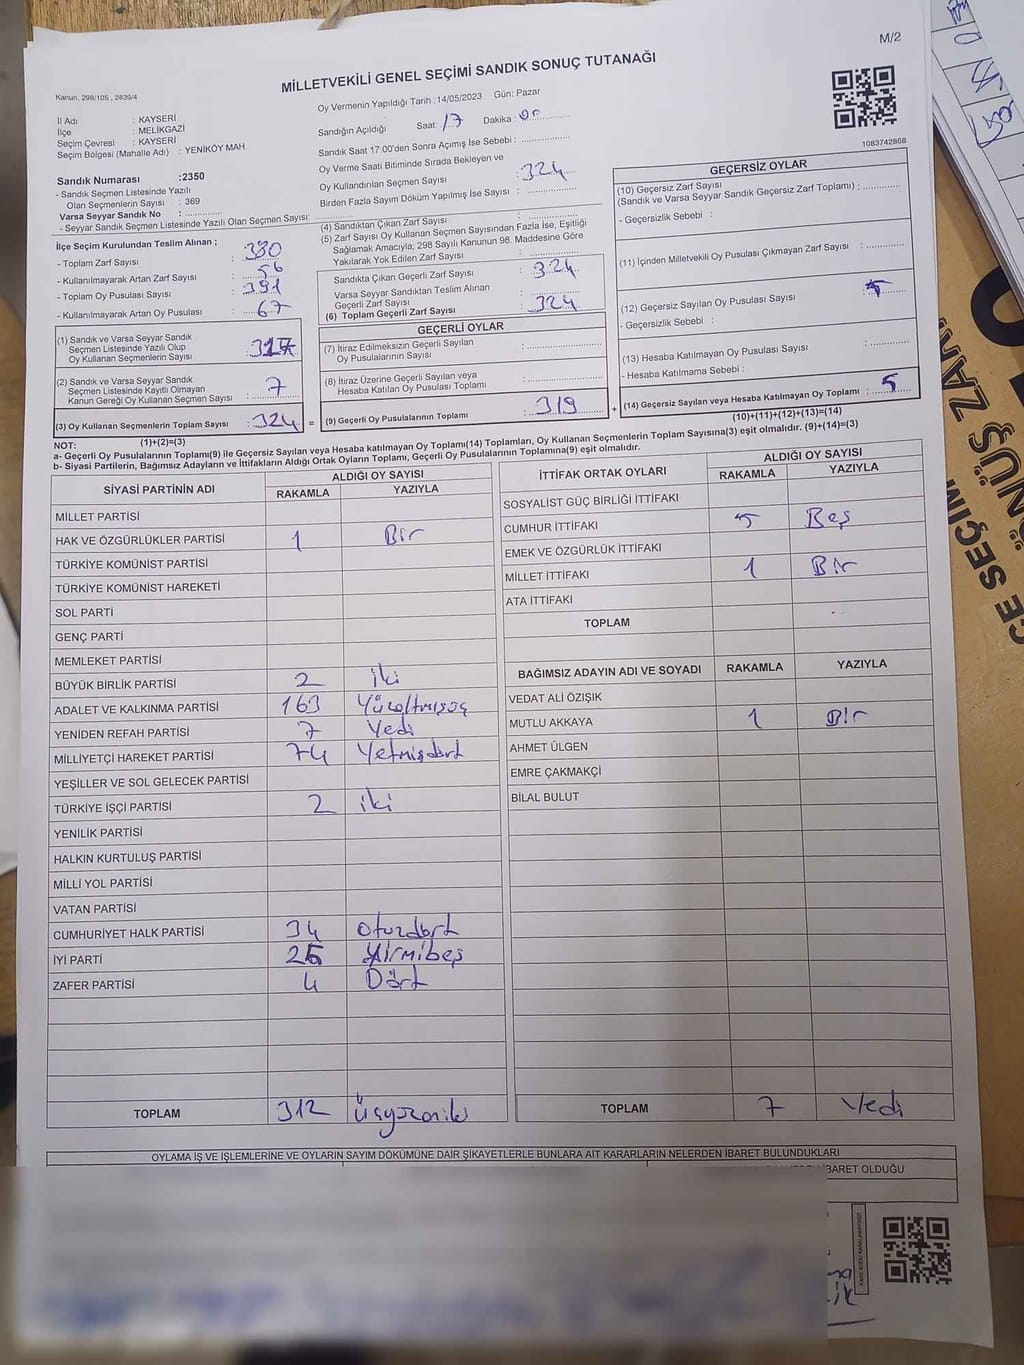 M/2
MİLLETVEKİLİ GENEL SEÇİMİ SANDIK SONUÇ TUTANAĞI
Kanun, 298/105 , 2839/4
İl Adı : KAYSERİ
İlçe : MELİKGAZİ
Seçim Çevresi : KAYSERİ
Seçim Bölgesi (Mahalle Adı) : YENİKÖY MAH.
Sandık Numarası :2350
- Sandık Seçmen Listesinde Yazılı
Olan Seçmenlerin Sayısı : 369
Varsa Seyyar Sandık No :
- Seyyar Sandık Seçmen Listesinde Yazılı Olan Seçmen Sayısı:
Oy Vermenin Yapıldığı Tarih :14/05/2023 Gün: Pazar
Sandığın Açıldığı Saat: 17 Dakika :
Sandık Saat 17.00'den Sonra Açılmış İse Sebebi :
Oy Verme Saati Bitiminde Sırada Bekleyen ve
Oy Kullandırılan Seçmen Sayısı : 324
Birden Fazla Sayım Döküm Yapılmış İse Sayısı :
1083742868
İlçe Seçim Kurulundan Teslim Alınan ;
- Toplam Zarf Sayısı : 380
- Kullanılmayarak Artan Zarf Sayısı : 56
- Toplam Oy Pusulası Sayısı : 391
- Kullanılmayarak Artan Oy Pusulası : 67
(1) Sandık ve Varsa Seyyar Sandık
Seçmen Listesinde Yazılı Olup
Oy Kullanan Seçmenlerin Sayısı : 317
(2) Sandık ve Varsa Seyyar Sandık
Seçmen Listesinde Kayıtlı Olmayan
Kanun Gereği Oy Kullanan Seçmen Sayısı : 7
(3) Oy Kullanan Seçmenlerin Toplam Sayısı : 324 =
(4) Sandıktan Çıkan Zarf Sayısı :
(5) Zarf Sayısı Oy Kullanan Seçmen Sayısından Fazla İse, Eşitliği
Sağlamak Amacıyla; 298 Sayılı Kanunun 98. Maddesine Göre
Yakılarak Yok Edilen Zarf Sayısı :
Sandıkta Çıkan Geçerli Zarf Sayısı : 324
Varsa Seyyar Sandıktan Teslim Alınan
Geçerli Zarf Sayısı :
(6) Toplam Geçerli Zarf Sayısı : 324
GEÇERLİ OYLAR
(7) İtiraz Edilmeksizin Geçerli Sayılan
Oy Pusulalarının Sayısı :
(8) İtiraz Üzerine Geçerli Sayılan veya
Hesaba Katılan Oy Pusulası Toplamı :
(9) Geçerli Oy Pusulalarının Toplamı : 319 +
GEÇERSİZ OYLAR
(10) Geçersiz Zarf Sayısı
(Sandık ve Varsa Seyyar Sandık Geçersiz Zarf Toplamı) :
- Geçersizlik Sebebi :
(11) İçinden Milletvekili Oy Pusulası Çıkmayan Zarf Sayısı :
(12) Geçersiz Sayılan Oy Pusulası Sayısı : 5
- Geçersizlik Sebebi :
(13) Hesaba Katılmayan Oy Pusulası Sayısı :
- Hesaba Katılmama Sebebi :
(14) Geçersiz Sayılan veya Hesaba Katılmayan Oy Toplamı : 5
NOT: (1)+(2)=(3) (10)+(11)+(12)+(13)=(14)
a- Geçerli Oy Pusulalarının Toplamı(9) ile Geçersiz Sayılan veya Hesaba katılmayan Oy Toplamı(14) Toplamları, Oy Kullanan Seçmenlerin Toplam Sayısına(3) eşit olmalıdır. (9)+(14)=(3)
b- Siyasi Partilerin, Bağımsız Adayların ve İttifakların Aldığı Ortak Oyların Toplamı, Geçerli Oy Pusulalarının Toplamına(9) eşit olmalıdır.
SİYASİ PARTİNİN ADI ALDIĞI OY SAYISI
RAKAMLA YAZIYLA
MİLLET PARTİSİ
HAK VE ÖZGÜRLÜKLER PARTİSİ 1 Bir
TÜRKİYE KOMÜNİST PARTİSİ
TÜRKİYE KOMÜNİST HAREKETİ
SOL PARTİ
GENÇ PARTİ
MEMLEKET PARTİSİ
BÜYÜK BİRLİK PARTİSİ 2 iki
ADALET VE KALKINMA PARTİSİ 163 Yüzaltmışüç
YENİDEN REFAH PARTİSİ 7 Yedi
MİLLİYETÇİ HAREKET PARTİSİ 74 Yetmişdört
YEŞİLLER VE SOL GELECEK PARTİSİ
TÜRKİYE İŞÇİ PARTİSİ 2 iki
YENİLİK PARTİSİ
HALKIN KURTULUŞ PARTİSİ
MİLLİ YOL PARTİSİ
VATAN PARTİSİ
CUMHURİYET HALK PARTİSİ 34 otuzdört
İYİ PARTİ 25 Yirmibeş
ZAFER PARTİSİ 4 Dört
TOPLAM 312 Üçyüzoniki
İTTİFAK ORTAK OYLARI ALDIĞI OY SAYISI
RAKAMLA YAZIYLA
SOSYALİST GÜÇ BİRLİĞİ İTTİFAKI
CUMHUR İTTİFAKI 5 Beş
EMEK VE ÖZGÜRLÜK İTTİFAKI
MİLLET İTTİFAKI 1 Bir
ATA İTTİFAKI
TOPLAM
BAĞIMSIZ ADAYIN ADI VE SOYADI RAKAMLA YAZIYLA
VEDAT ALİ ÖZIŞIK
MUTLU AKKAYA 1 Bir
AHMET ÜLGEN
EMRE ÇAKMAKÇİ
BİLAL BULUT
TOPLAM 7 Yedi
OYLAMA İŞ VE İŞLEMLERİNE VE OYLARIN SAYIM DÖKÜMÜNE DAİR ŞİKAYETLERLE BUNLARA AİT KARARLARIN NELERDEN İBARET BULUNDUKLARI
İBARET OLDUĞU